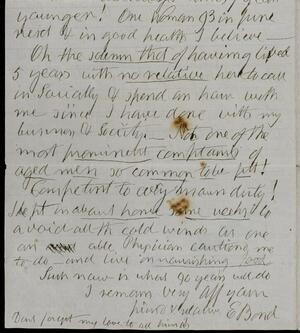 younger! One woman 93 in June
next & in good health I believe —
Oh the solemn that of having lived
5 years with no relative here to call
in Socially & spend an hour with
me since I have done with my
business & Society — Not one of the
most prominent complaints of
aged men so common to be felt!
Competent to every maun duty!
kept in about home some weeks to
avoid all the cold winds as one
an able Physician cautions me
to do — and live on nourishing food
Such now is what 90 years will do
I remain very aff
E Bond
Dont forget my love to all